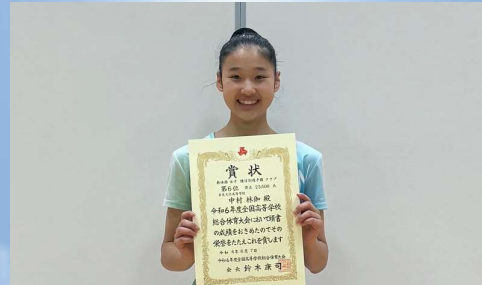 賞状
第6位 得点 23.600 点
中村 林伽 殿
令和6年度全国高等学校
総合体育大会において頭書
の成績をおさめたのでその
栄誉をたたえこれを賞します
令和6年8月7日
令和6年度全国高等学校総合体育大会
会長 鈴木康司